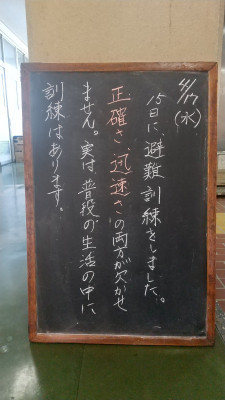 4/17(水)
15日に、避難訓練をしました。
正確さ、迅速さの両方が欠かせ
ません。実は普段の生活の中に
訓練はあります。